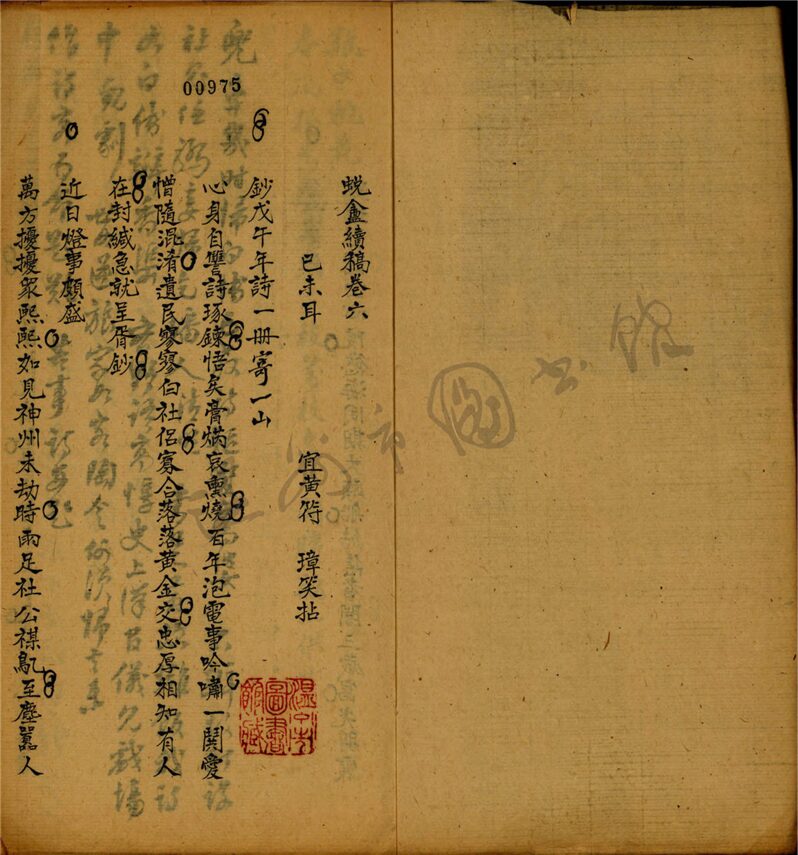 00975
蛻盦續稿卷六
己未年
宜黃符璋笑拈
鈔戊午年詩一册寄一山
心身自讐詩琢鍊悟矣膏焫哀熏燒百年泡電事吟嘯一関愛
憎隨混淆遺民寥寥白社侶寡合落落黃金交忠厚相知有人
在封緘急就呈胥鈔
近日燈事頗盛
萬方擾擾衆熙熙如見神州未劫時雨足社公禖亂至塵嚻人
溫州市
圖書
館藏